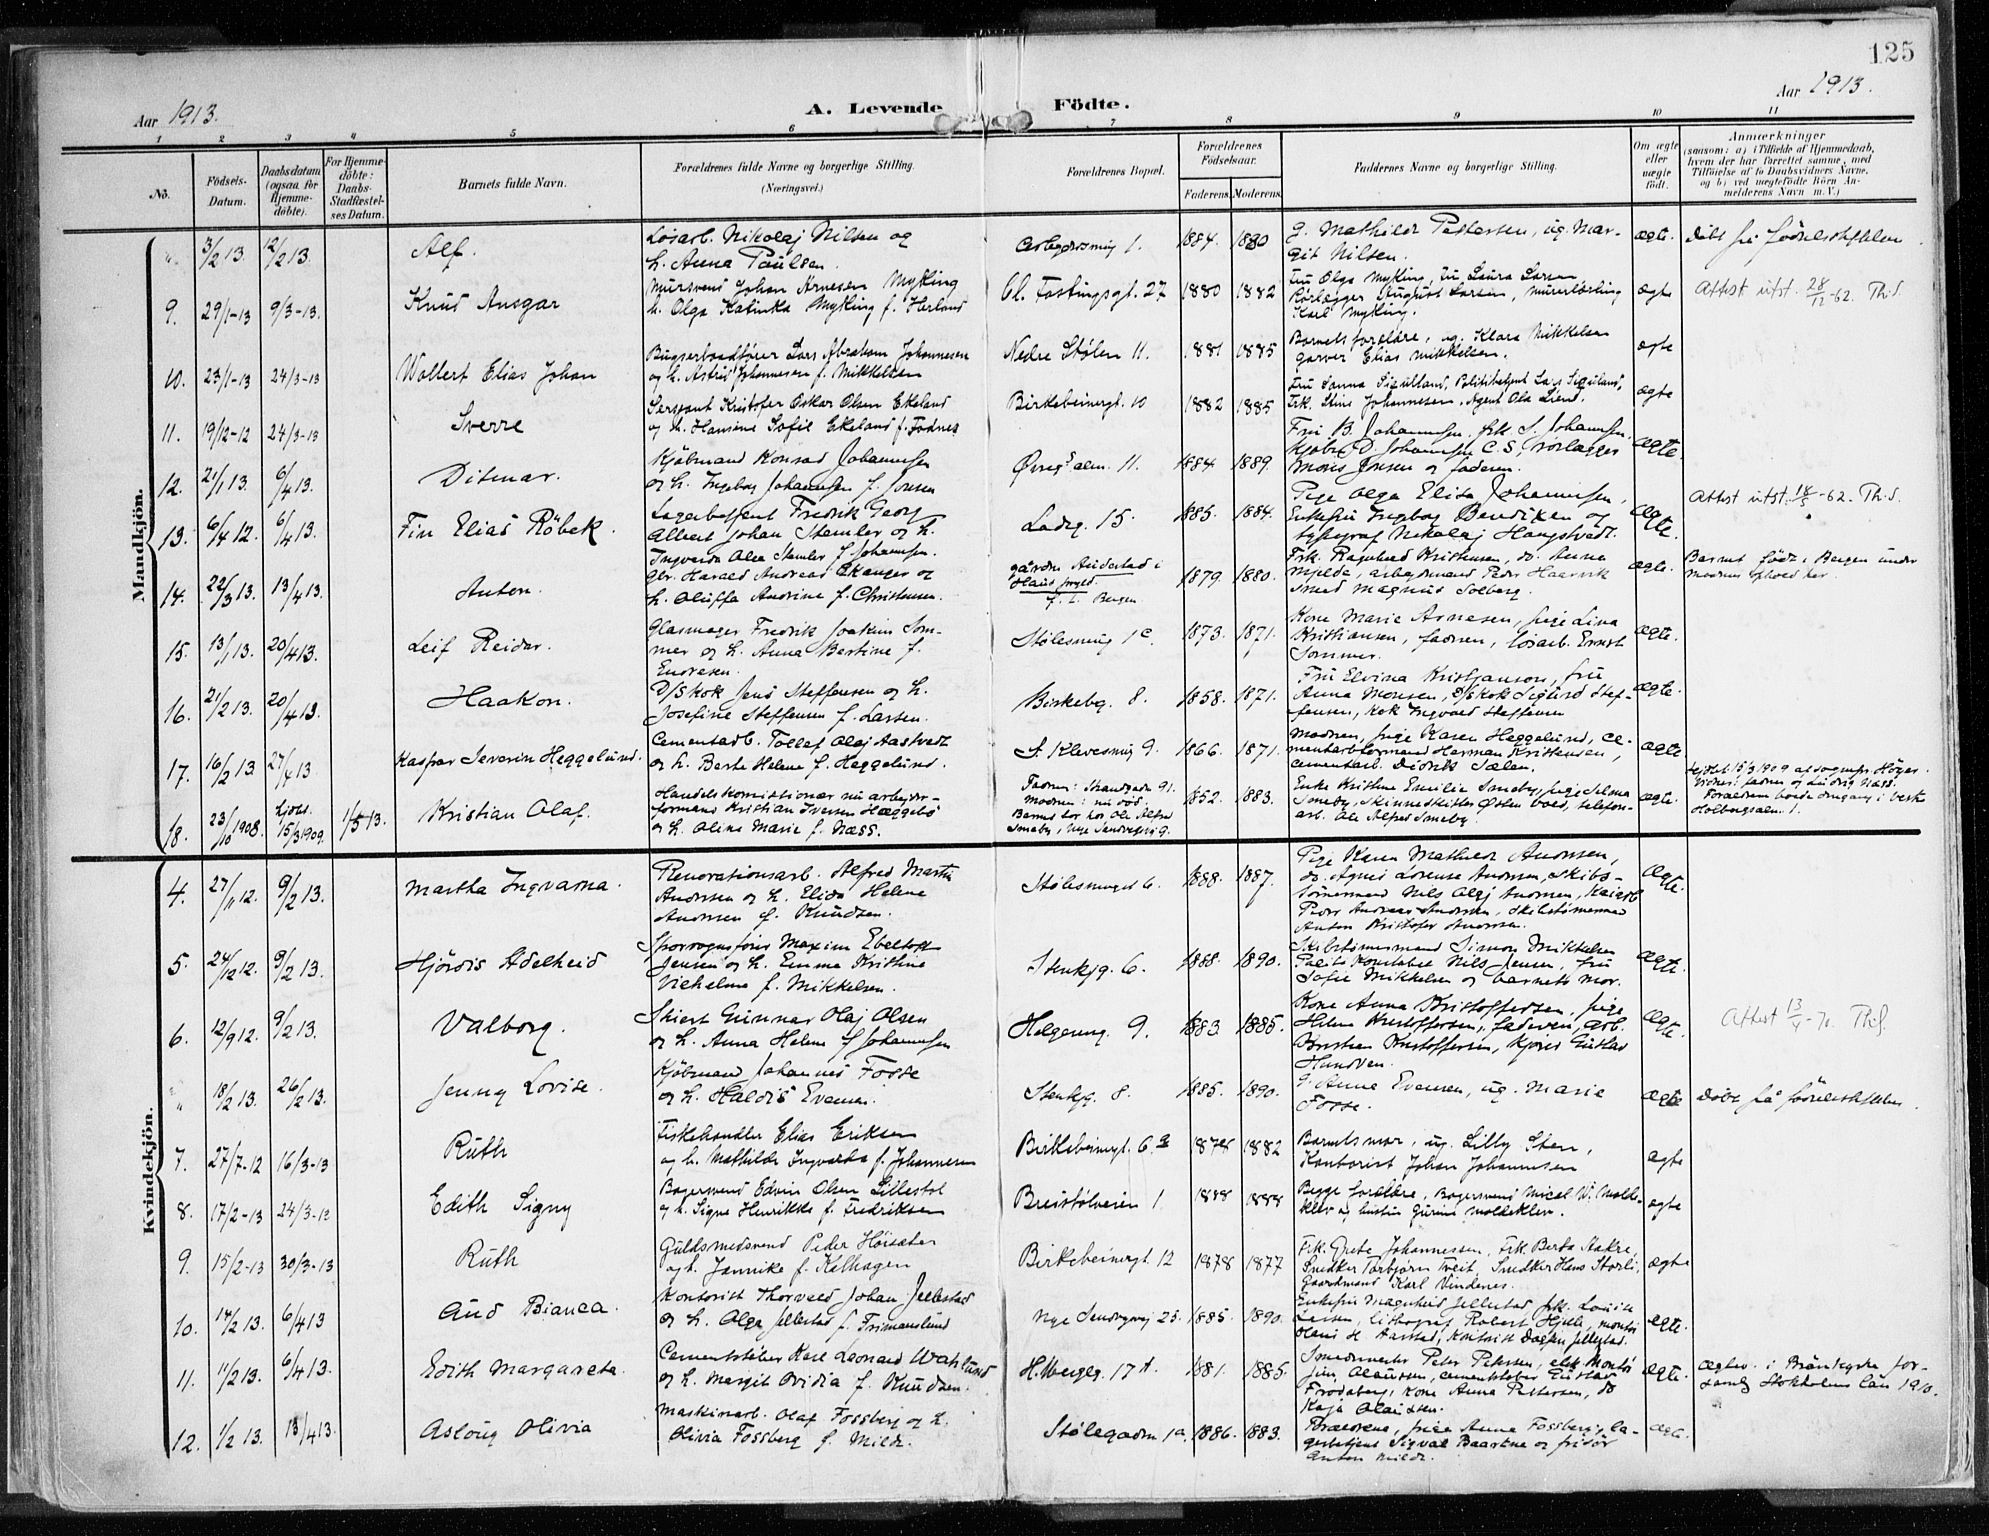 125
Aar 1913.
A. Levende Födte.
Aar 1913.
1 2 3 4 5 6 7 8 9 10 11
No.
Födsels-Datum.
Daabsdatum (ogsaa for Hjemme-döbte).
For Hjemme-döbte: Daabs-Stadfæstel-ses Datum.
Barnets fulde Navn.
Forældrenes fulde Navne og borgerlige Stilling.
(Næringsvei.)
Forældrenes Bopæl.
Forældrenes Födselsaar.
Faderens. Moderens.
Faddernes Navne og borgerlige Stilling.
Om ægte eller uægte födt.
Anmærkninger
(saasom: a) i Tilfælde af Hjemmedaab,
hvem der har forrettet samme, med
Tilföielse af to Daabsvidners Navne,
og b) ved uægtefödte Börn An-
melderens Navn m. V.)
Mandkjön.
" 3/2 13. 12/2 13. Alf.
Lösarb. Nikolaj Nilsen og
h. Anna Paulsen.
1. 1884. 1880
G. Mathilde Pettersen, ug. Mar-
git Nilsen.
ægte. Döbt på födselsstiftelsen
9. 29/1-13 9/3-13. Knud Ansgar
Mursvend Johan Arnesen Mykling
h. Olga Katinka Mykling f. Herland
Cl. Fastingsgt. 27 1880 1882
Fru Olga Mykling, Fru Laura Larsen
Rörlægger August Larsen, murerlærling
Karl Mykling.
ægte Attest utst. 28/12-62. Th.S.
10. 23/1-13 24/3-13 Wollert Elias Johan
Bugserbaadförer Lars Abraham Johannesen
og h. Astrid Johannesen f. Mikkelsen
Nedre Stölen 11. 1881 1885
Barnets forældre, ug. Klara Mikkelsen
garver Elias Mikkelsen.
ægte
11. 19/12-12 24/3-13 Sverre
Sersjant Kristofer Oskar Olsen Ekeland
og h. Hansine Sofie Ekeland f. Fodnes
Birkebeinergt. 10 1882 1885
Frk. Stine Johannesen, Agent Ola Liend.
ægte
12. 21/1 13. 6/4 13. Ditmar.
Kjöbmand Konrad Johannesen
og h. Ingeborg Johannesen f. Jonsen
Övregs alm. 11. 1884 1889.
Fru B. Johannesen, frk. S. Johannesen,
kjöbm. D. Johannesen C. S., rörlægger
Mons Jonsen og faderen.
ægte.
13. 6/4 12. 6/4 13. Fin Elias Röbek.
Lagerbetjent Fredrik Georg
Albert Johan Stamler og h.
Ingvarda Olea Stamler f. Johannesen.
Ladeg. 15. 1885. 1884.
Pige Olga Elisa Johannesen,
Enkefru Ingborg Bendixen og
typograf Nikolaj Haugstvedt.
ægte. Attest utst. 18/5-62. Th.S.
14. 22/3 13. 13/4 13. Anton.
gbr. Harald Andreas Skanger og
h. Oluffa Andrine f. Christensen.
gården Andestad i
f. t. Bergen
1879. 1880.
Frk. Ragnhild Kristensen, do. Anna
Mjelde, arbejdsmand Peder Haarvik
smed Magnus Solberg.
ægte. Barnet född i Bergen under
modrens ophold her.
15. 13/1 13. 20/4 13. Leif Reidar.
Glasmager Fredrik Joakim Som-
mer og h. Anna Bertine f.
Endresen.
Stölesmug 1c. 1873. 1871.
Kone Marie Arnesen, pige Lina
Kristiansen, fadren, lösarb. Ernst
Sommer.
ægte.
16. 21/2 13. 20/4 13. Haakon.
D/S kok Jens Steffensen og h.
Josefine Steffensen f. Larsen.
Birkebg. 8. 1858. 1871.
Fru Elvina Kristjanson, fru
Anna Monsen, D/S kok Sigurd Stef-
fensen, kok Ingvald Steffensen
ægte.
17. 16/2 13. 27/4 13 Kaspar Severin Heggelund.
Cementarb. Tollef Olaj Aastvedt
og h. Berte Helene f. Heggelund.
S. Klevesmug 9. 1866. 1871.
Modren, pige Karen Heggelund, ce-
mentarbformand Herman Kristensen,
cementarb. Didrik Sælen.
ægte.
18. 23/10 1908. hjdbt. 15/3 1909. 1/5 13. Kristian Olaf.
Handelskomissionær nu arbejder-
formand Kristian Iversen Hæggebö
og h. Oline Marie f. Næss.
Fadren: Strandgade 91.
Modren: nu död.
Barnet bor hos Ole Alfred
Smeby, nye Sandvigsvej 9.
1852. 1883.
Enke Kristine Emilie Smeby, pige Selma
Smeby, Skinnedkeitter Östen Boed, telefon-
arb. Ole Alfred Smeby.
ægte. hjdbt. 15/3 1909 af sognepr. Höyer.
Vidner: fadren og Ludvig Næss.
Forældrene boede dengang i vestre
Holbergsalm. 1.
Kvindekjön.
4. 27/11 12. 9/2 13. Martha Ingvarna.
Renovationsarb. Alfred Martin
Andersen og h. Elida Helene
Andersen f. Knudsen.
Stölesmuget 6. 1888. 1887.
Pige Karen Mathilde Andersen,
do. Agnes Lovense Andersen, Skibs-
tömmermand Nils Olaj Andersen, Kaiarb.
Peder Andreas Andersen, skibstömmermand
Anton Kristofer Andersen.
ægte.
5. 24/12 12. 9/2 13. Hjördis Adelheid
Sporvognsförer Maxim Ebeltoft
Jensen og h. Emma Kristine
Vilhelmine f. Mikkelsen.
Stenkjg. 6. 1888. 1890.
Skibstömmermand Simon Mikkelsen
Politikonstabel Nils Jensen, fru
Sofie Mikkelsen og barnets mor.
ægte.
6. 12/9 12. 9/2 13. Valborg.
Skiert Gunnar Olaj Olsen
og h. Anna Helene f. Johannesen
Helgesmug 9. 1883. 1885.
Kone Anna Kristoffersen, pige
Helene Kristoffersen, faderen, arb.
Kristian Kristoffersen, kjörer Gustav
Hundven.
ægte. Attest 13/4-70. Th.S.
" 18/2 13. 26/2 13. Jenny Lovise.
Kjöbmand Johannes Fosse
og h. Haldis Evensen.
Stenkjg. 8. 1885. 1890.
G. Anna Evensen, ug. Marie
Fosse.
ægte Döbt på födselsstiftelsen.
7. 27/7-12 16/3-13 Ruth
Fiskehandler Elias Eriksen
og h. Mathilde Ingvarda f. Johannesen
Birkebeinergt. 6 1874 1882
Barnets mor, ug. Lilly Sten,
Kontorist Johan Johannesen
ægte
8. 17/2-13 24/3-13 Edith Signy
Bagersvend Edvin Olsen Lillestöl
og h. Signe Henrikke f. Fredriksen
Breistölveien 1 1888 1888
Begge forældre, Bagersvend Micael V. Molde-
klev og hustru Gurine Moldeklev.
ægte
9. 15/2-13 30/3-13 Ruth
Guldsmedsvend Peder Höisæter
og h. Jannike f. Kalhagen
Birkebeinergt. 12 1878 1877
Frk. Grete Johannessen, Frk. Berta Stakre,
Snedker Torbjörn Tveit, Snedker Hans Storli,
Gaardmand Karl Vindenes.
ægte
10. 14/2 13. 6/4 13 Aud Bianca.
Kontorist Thorvald Johan Jellestad
og h. Olga Jellestad f. Trimanslund
Nye Sandvigsvej 25. 1885. 1890.
Enkefru Magnhild Jellestad, frk. Louise
Larsen, lithograf Robert Hjelle, montör
Olaus H. Aarstad, kontorist Dagfin Jellestad.
ægte.
11. 11/2 13. 6/4 13. Edith Margareta.
Cementstöber Karl Leonard Wahlund
og h. Margit Ovidia f. Knudsen.
H. Wergelg. 17 1881. 1885.
Smedmester Peter Petersen, elek. Montör
Jens Olaussen, cementstöber Gustav
Frodaberg, kone Anna Pettersen, do
Kaja Olaussen.
ægte. Ægtev. i Bränkyrka for-
samlg Stokholms län 1910.
12. 1/2 13. 13/4 13. Asloug Olivia
Maskinarb. Olaf Fossberg og h.
Olivia Fossberg f. Milde.
Stölegaden 1a. 1886. 1883.
Forældrene, pige Anna Fossberg, la-
gerbetjent Sigval Baartne og frisör
Anton Milde.
ægte.